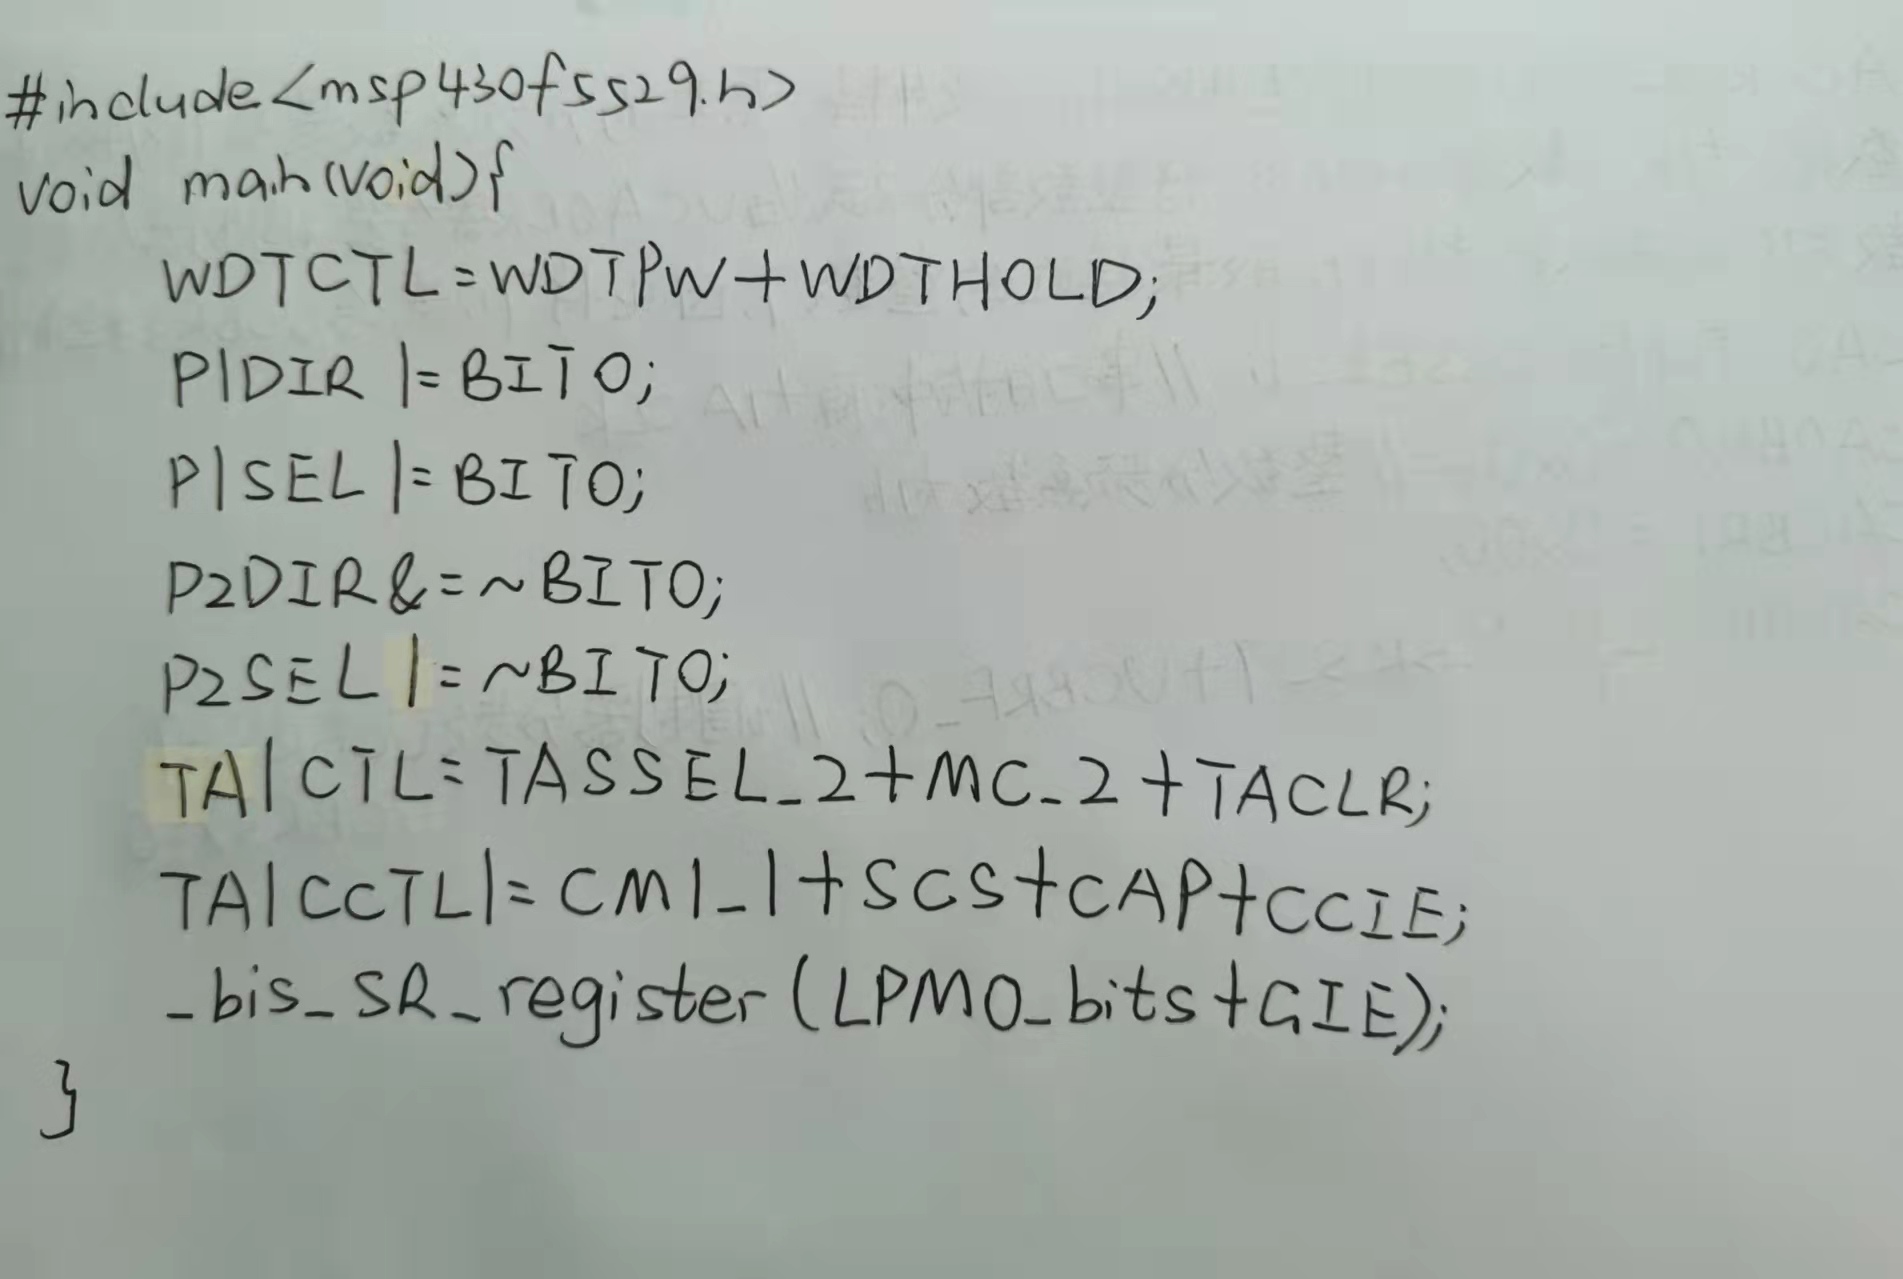 #include<msp430f5529.h>
void main(void){
WDTCTL=WDTPW+WDTHOLD;
P1DIR |= BIT0;
P1SEL |= BIT0;
P2DIR&=~BIT0;
P2SEL |=~BIT0;
TA1CTL=TASSEL_2+MC_2+TACLR;
TA1CCTL1=CM1_1+SCS+CAP+CCIE;
_bis_SR_register(LPM0_bits+GIE);
}